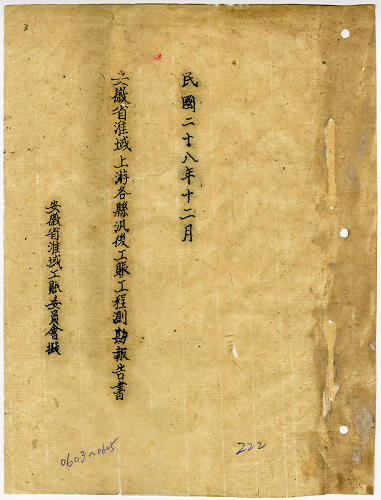 民國二十八年十二月
安徽省淮域上游各縣汎後工賑工程測勘報告書
安徽省淮域工賑委員會擬
3
0603~0605
222